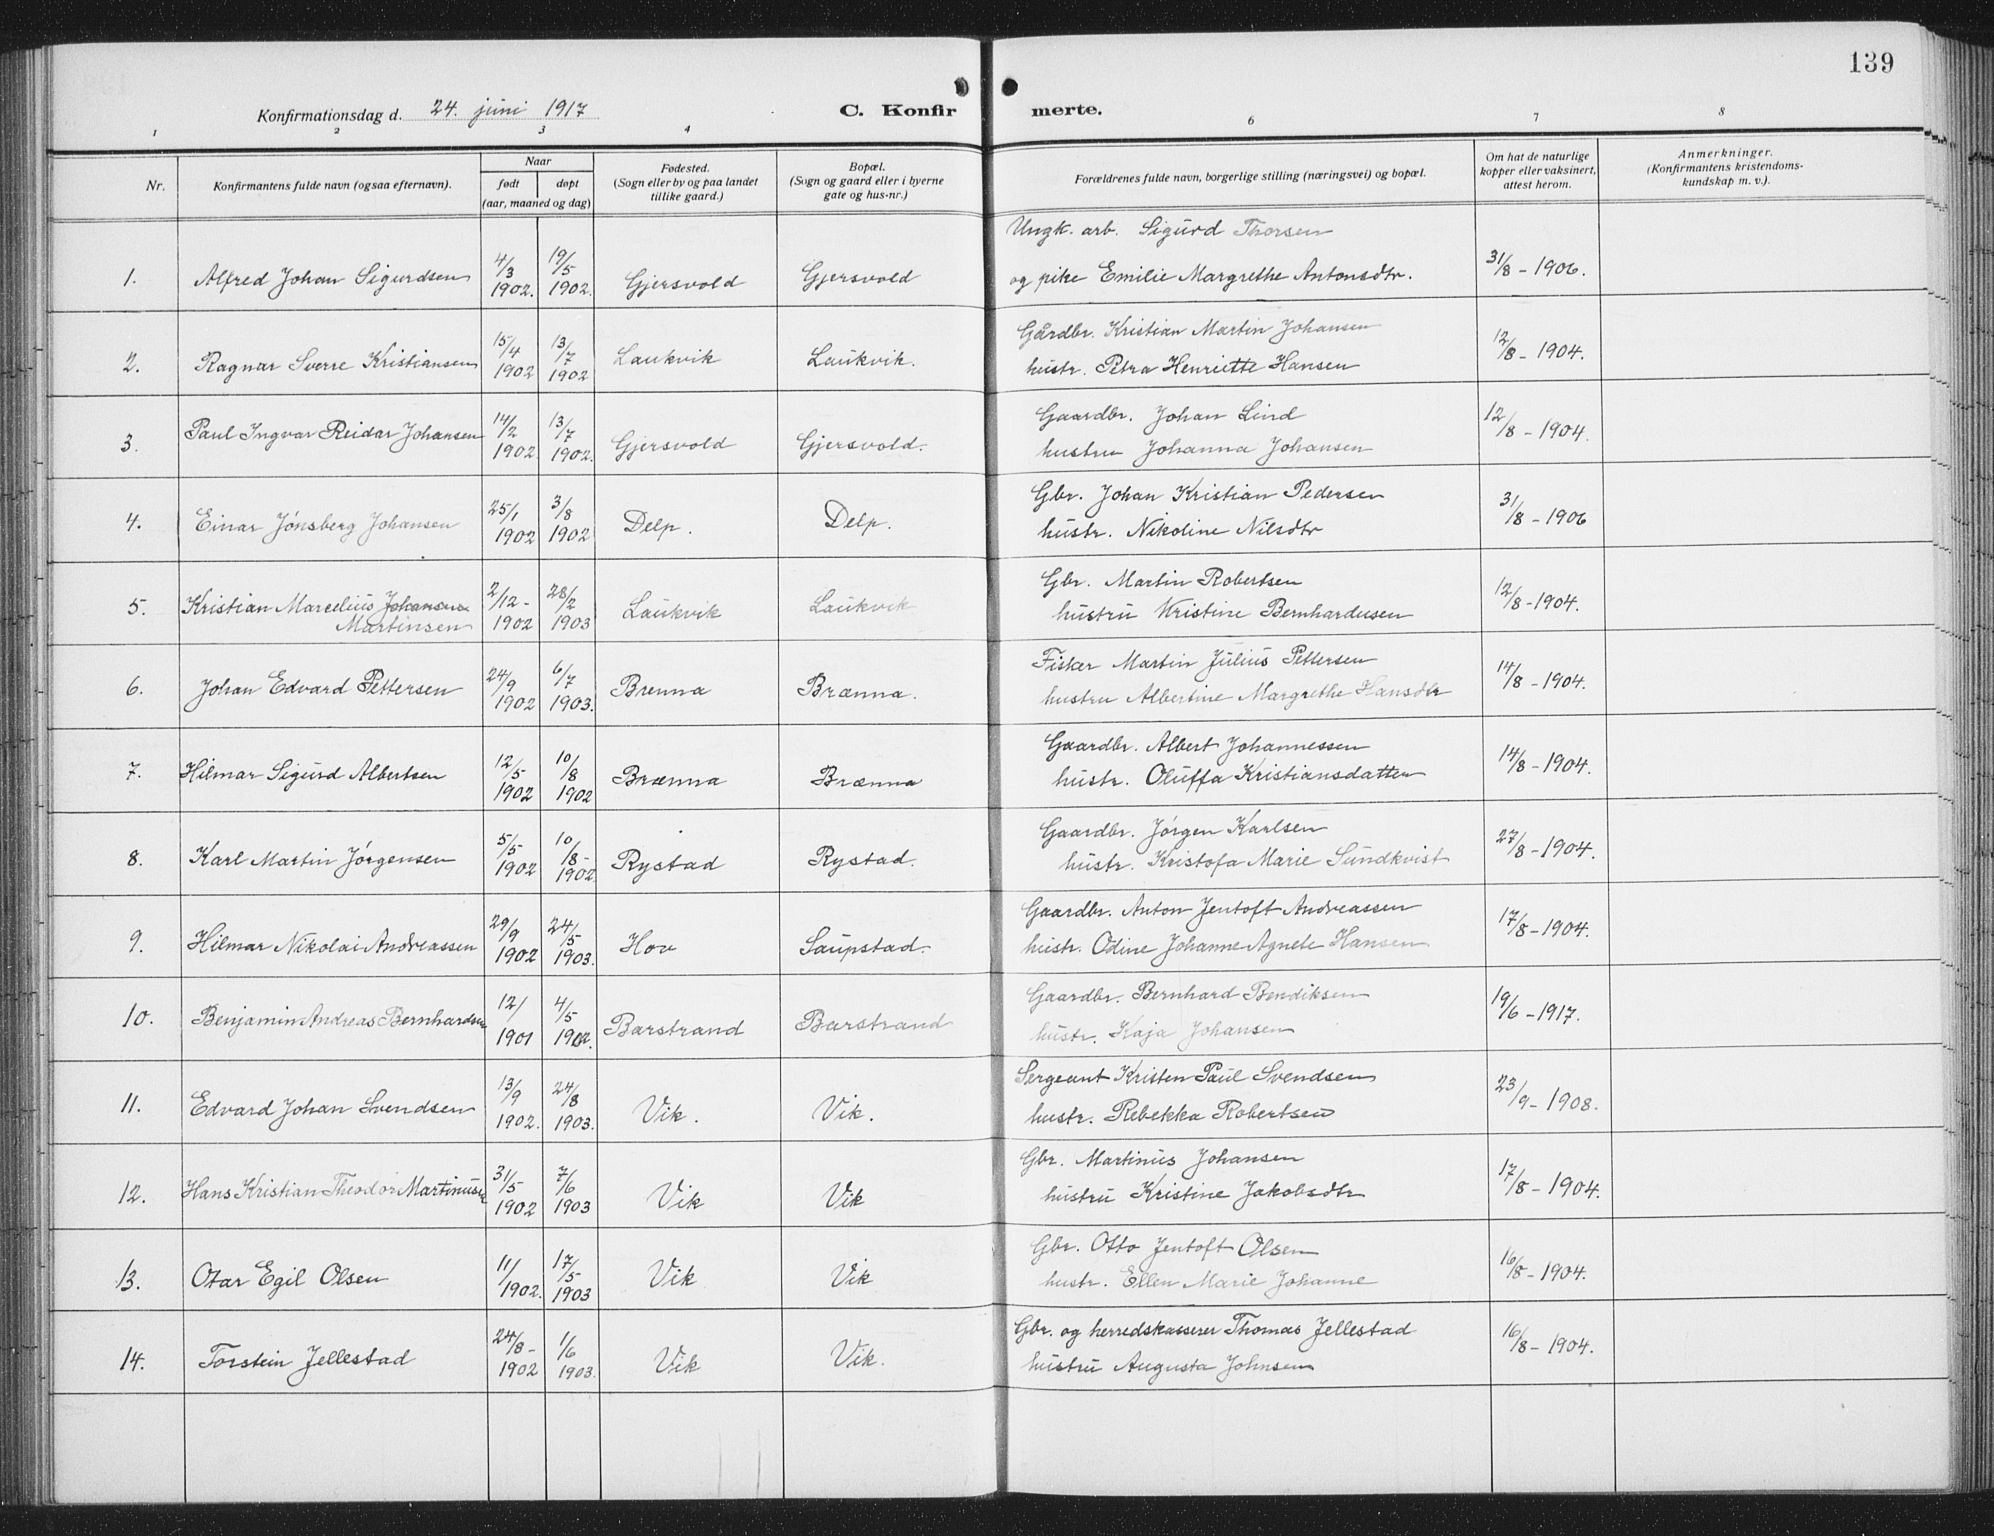 139
Konfirmationsdag d. 24. juni 1917 C. Konfirmerte.
1 2 3 4 6 7 8
Nr. Konfirmantens fulde navn (ogsaa efternavn). Naar født døpt (aar, maaned og dag) Fødested. (Sogn eller by og paa landet tillike gaard.) Bopæl. (Sogn og gaard eller i byerne gate og hus-nr.) Forældrenes fulde navn, borgerlige stilling (næringsvei) og bopæl. Om hat de naturlige kopper eller vaksinert, attest herom. Anmerkninger. (Konfirmantens kristendoms-kundskap m. v.).
1. Alfred Johan Sigurdsen 4/3 1902. 19/5 1902. Gjersvold Gjersvold Ungk. arb. Sigurd Thorsen
og pike Emilie Margrethe Antonsdtr. 31/8 - 1906.
2. Ragnar Sverre Kristiansen 15/4 1902 13/7 1902 Laukvik Laukvik. Gårdbr. Kristian Martin Johansen
hustr. Petra Henriette Hansen 12/8 - 1904.
3. Paul Ingvar Reidar Johansen 14/2 1902 13/7 1902. Gjersvold Gjersvold. Gaardbr. Johan Lind
hustru Johanna Johansen 12/8 - 1904.
4. Einar Jönsberg Johansen 25/1 1902 3/8 1902 Delp. Delp. Gbr. Johan Kristian Pedersen
hustr. Nikoline Nilsdtr 31/8 - 1906
5. Kristian Marcelius Johansen
Martinsen 2/12 - 1902 28/2 1903 Laukvik Laukvik Gbr. Martin Robertsen
hustru Kristine Bernhardusen 12/8 - 1904.
6. Johan Edvard Pettersen 24/9 1902 6/7 1903. Brenna Brænna. Fisker Martin Julius Pettersen
hustru Albertine Margrethe Hansdtr 14/8 - 1904.
7. Hilmar Sigurd Albertsen 12/5 1902 10/8 1902 Brænna Brænna Gaardbr. Albert Johannessen
hustr. Oluffa Kristiansdatter 14/8 - 1904.
8. Karl Martin Jørgensen 5/5 1902 10/8 - 1902. Rystad Rystad. Gaardbr. Jörgen Karlsen
hustr. Kristofa Marie Sundkvist 27/8 - 1904.
9. Hilmar Nikolai Andreassen 29/9 1902 24/5 1903. Hov Saupstad. Gaardbr. Anton Jentoft Andreassen
hustr. Odine Johanne Agnete Hansen 17/8 - 1904.
10. Benjamin Andreas Bernhardsen 12/1 1901 4/5 1902. Barstrand Barstrand Gaardbr. Bernhard Bendiksen
hustr. Kaja Johansen 19/6 - 1917.
11. Edvard Johan Svendsen 13/9 1902. 24/8 1903. Vik. Vik. Sergeant Kristen Paul Svendsen
hustr. Rebekka Robertsen 23/9 - 1908.
12. Hans Kristian Theodor Martinusen 31/5 1902 7/6 1903 Vik Vik Gbr. Martinus Johansen
hustru Kristine Jakobsdtr 17/8 - 1904.
13. Otar Egil Olsen 11/1 1902. 17/5 1903 Vik Vik Gbr. Otto Jentoft Olsen
hustr. Ellen Marie Johanne 16/8 - 1904.
14. Torstein Jellestad 24/8 - 1902 1/6 1903. Vik Vik. Gbr. og herredskasserer Thomas Jellestad
hustru Augusta Johnsen 16/8 - 1904.